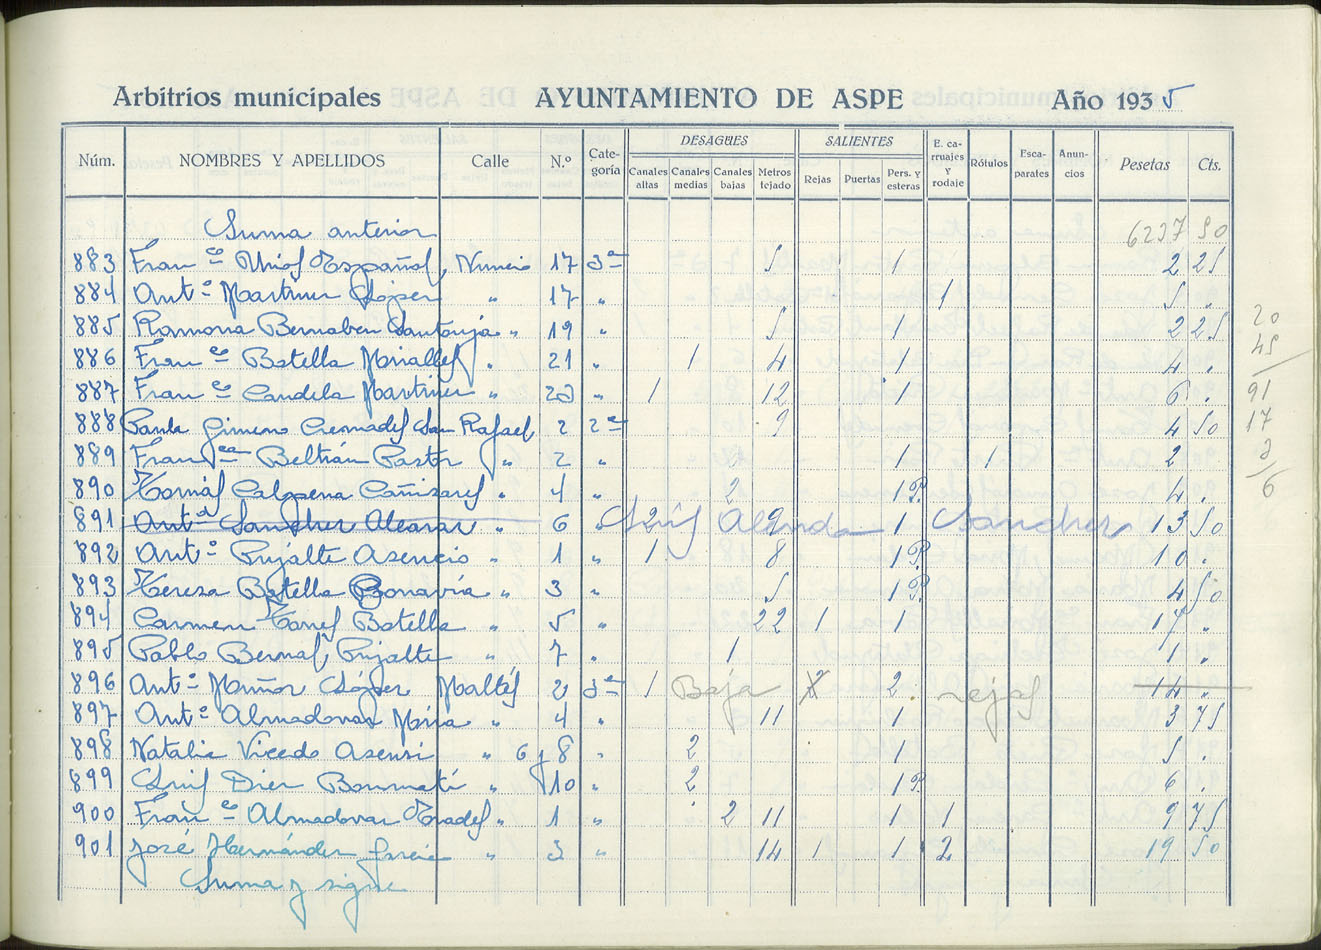 Arbitrios municipales AYUNTAMIENTO DE ASPE Año 1935
DESAGÜES SALIENTES
Núm. NOMBRES Y APELLIDOS Calle N.º Categoría Canales altas Canales medias Canales bajas Metros tejado Rejas Puertas Pers. y esteras E. carruajes y rodaje Rótulos Escaparates Anuncios Pesetas Cts.
Suma anterior 6237 50
883 Fran.co Español, Nuncio 17 3ª 5 1 2 25
884 Ant.º Martinez López " 17 " 1 5 "
885 Ramona Bernabeu Santonja " 19 " 5 1 2 25
886 Fran.co Botella Miralles " 21 " 1 4 1 4 .
887 Fran.co Candela Martinez " 23 " 1 12 1 6 .
888 Paula Gimeno Cremades San Rafael 2 2ª 9 4 50
889 Fran.ca Beltrán Pastor " 2 " 1 1 2 .
890 Tomás Calpena Cañizares " 4 " 2 1P. 4 .
891 Ant.ª Sanchez Alcaraz " 6 " 2 9 1 13 50
Luis Alenda Sanchez
892 Ant.º Pujalte Asencio " 1 " 1 8 1P. 10 .
893 Tereza Botella Bonavía " 3 " 5 1P. 4 50
894 Carmen Torres Botella " 5 " 22 1 1 17 "
895 Pablo Bernal, Pujalte " 7 " 1 1 "
896 Ant.º Muñoz López Maltés 2 3ª 1 Baja 2 rejas 14 "
897 Ant.º Almodovar Mira " 4 " 11 1 3 75
898 Natalia Vicedo Asensi " 6 y 8 " 2 1 5 .
899 Luis Diez Bonmatí " 10 " 2 1P. 6 .
900 Fran.co Almodovar Prades " 1 " 2 11 1 1 9 75
901 José Hernández García " 3 " 14 1 1 2 19 50
Suma y sigue
20
45
91
17
2
6